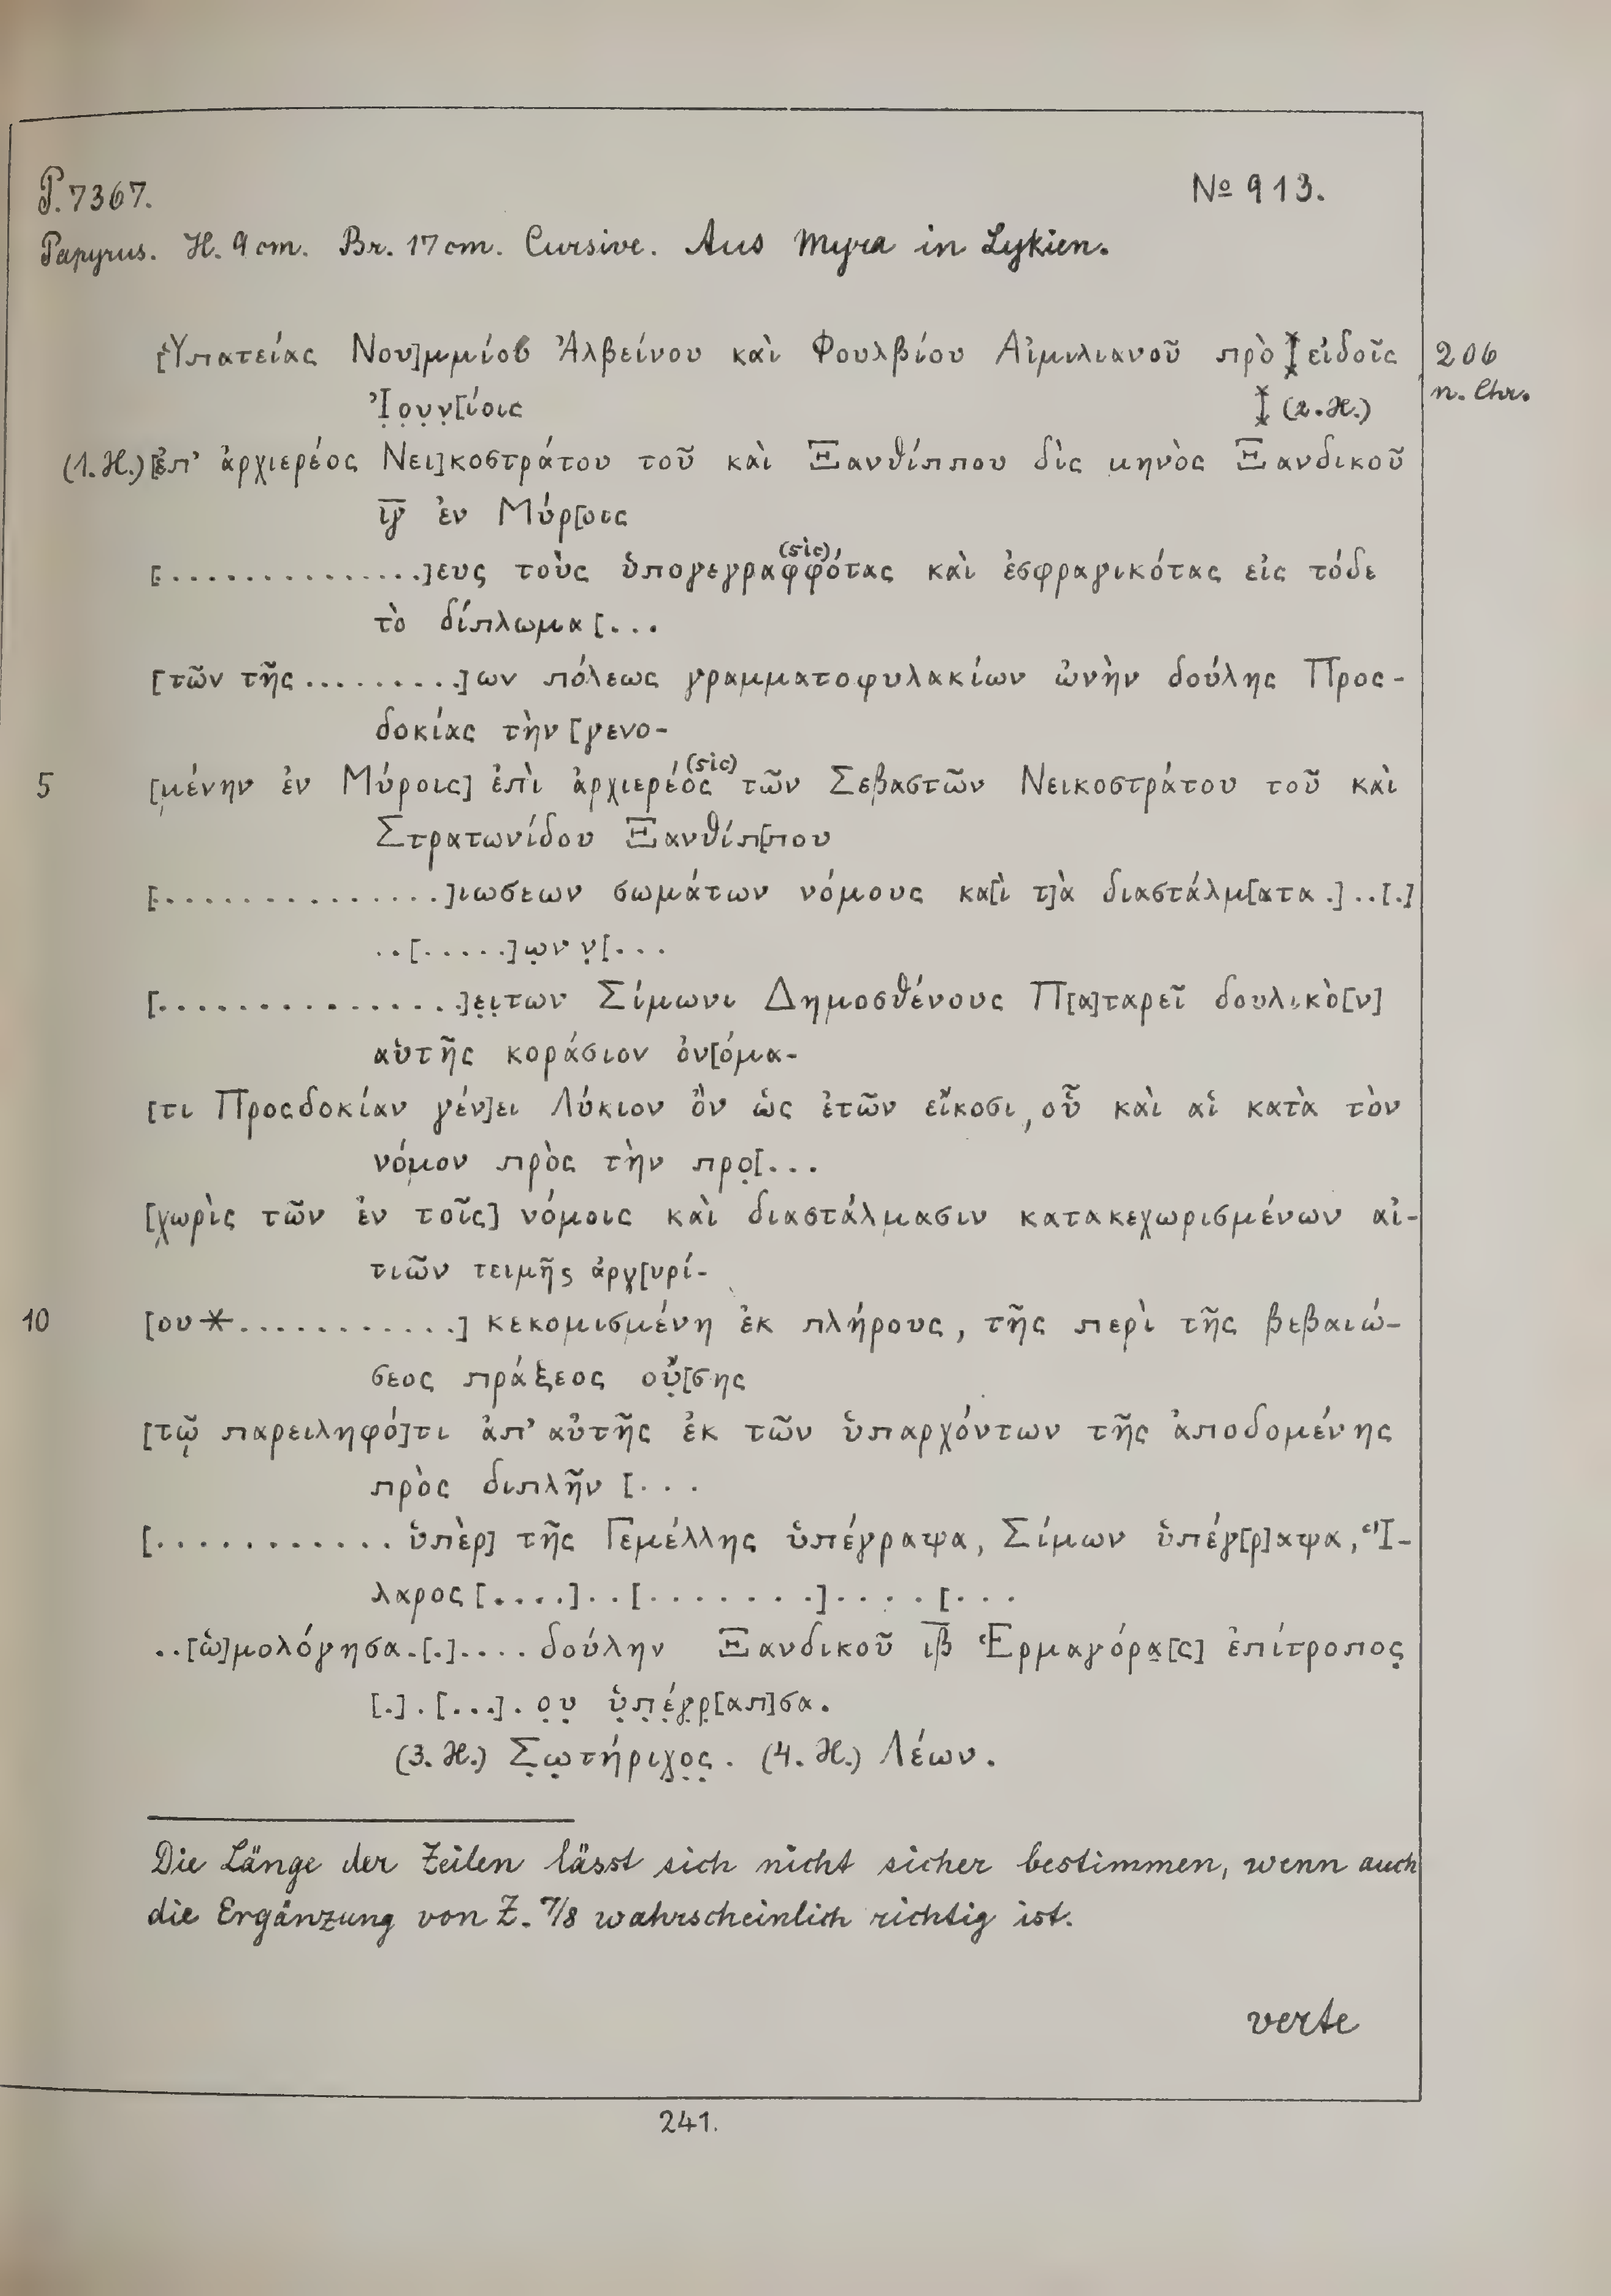 P. 7367.
№ 913.
Papyrus. H. 9 cm. Br. 17 cm. Cursive. Aus Myra in Lykien.
[Ὑπατείας Νου]μμίου Ἀλβείνου καὶ Φουλβίου Αἰμιλιανοῦ πρὸ ⌶ εἰδοῖς
206
n. Chr.
Ἰ̣ο̣υ̣ν̣[ίοις
⌶ (2. H.)
(1. H.) [ἐπ’ ἀρχιερέος Νει]κοστράτου τοῦ καὶ Ξανθίππου δὶς μηνὸς Ξανδικοῦ
ι̅γ̅ ἐν Μύρ[οις
[...............]ευς τοὺς ὑπογεγραφφότας καὶ ἐσφραγικότας εἰς τόδε
(sic)
τὸ δίπλωμα [...
[τῶν τῆς .........]ων πόλεως γραμματοφυλακίων ὠνὴν δούλης Προς-
δοκίας τὴν [γενο-
5 [μένην ἐν Μύροις] ἐπὶ ἀρχιερέος τῶν Σεβαστῶν Νεικοστράτου τοῦ καὶ
(sic)
Στρατωνίδου Ξανθίπ[που
[...............]ιωσεων σωμάτων νόμους κα[ὶ τ]ὰ διαστάλμ[ατα .] ..[.]
..[.....]ω̣ν ν̣[...
[................]ε̣ι̣των Σίμωνι Δημοσθένους Π[α]ταρεῖ δουλικὸ[ν]
αὑτῆς κοράσιον ὀν[όμα-
[τι Προςδοκίαν γέν]ει Λύκιον ὂν ὡς ἐτῶν εἴκοσι, οὗ καὶ αἱ κατὰ τὸν
νόμον πρὸς τὴν προ̣[...
[χωρὶς τῶν ἐν τοῖς] νόμοις καὶ διαστάλμασιν κατακεχωρισμένων αἰ-
τιῶν τειμῆς ἀργ[υρί-
10 [ου ⚹............] κεκομισμένη ἐκ πλήρους, τῆς περὶ τῆς βεβαιώ-
σεος πράξεος οὔ̣[σης
[τῷ παρειληφό]τι ἀπ’ αὐτῆς ἐκ τῶν ὑπαρχόντων τῆς ἀποδομένης
πρὸς διπλῆν [...
[............ ὑπὲρ] τῆς Γεμέλλης ὑπέγραψα, Σίμων ὑπέγ[ρ]αψα, Ἵ-
λαρος [....]..[........]....[...
..[ὡ]μολόγησα.[.].... δούλην Ξανδικοῦ ι̅β̅ Ἑρμαγόρα̣[ς] ἐπίτροπος̣
[.].[...]. ο̣υ̣ ὑ̣π̣έ̣γ̣ρ̣[απ]σα.
(3. H.) Σ̣ω̣τήριχ̣ο̣ς̣. (4. H.) Λέων.
Die Länge der Zeilen lässt sich nicht sicher bestimmen, wenn auch
die Ergänzung von Z. 7/8 wahrscheinlich richtig ist.
verte
241.